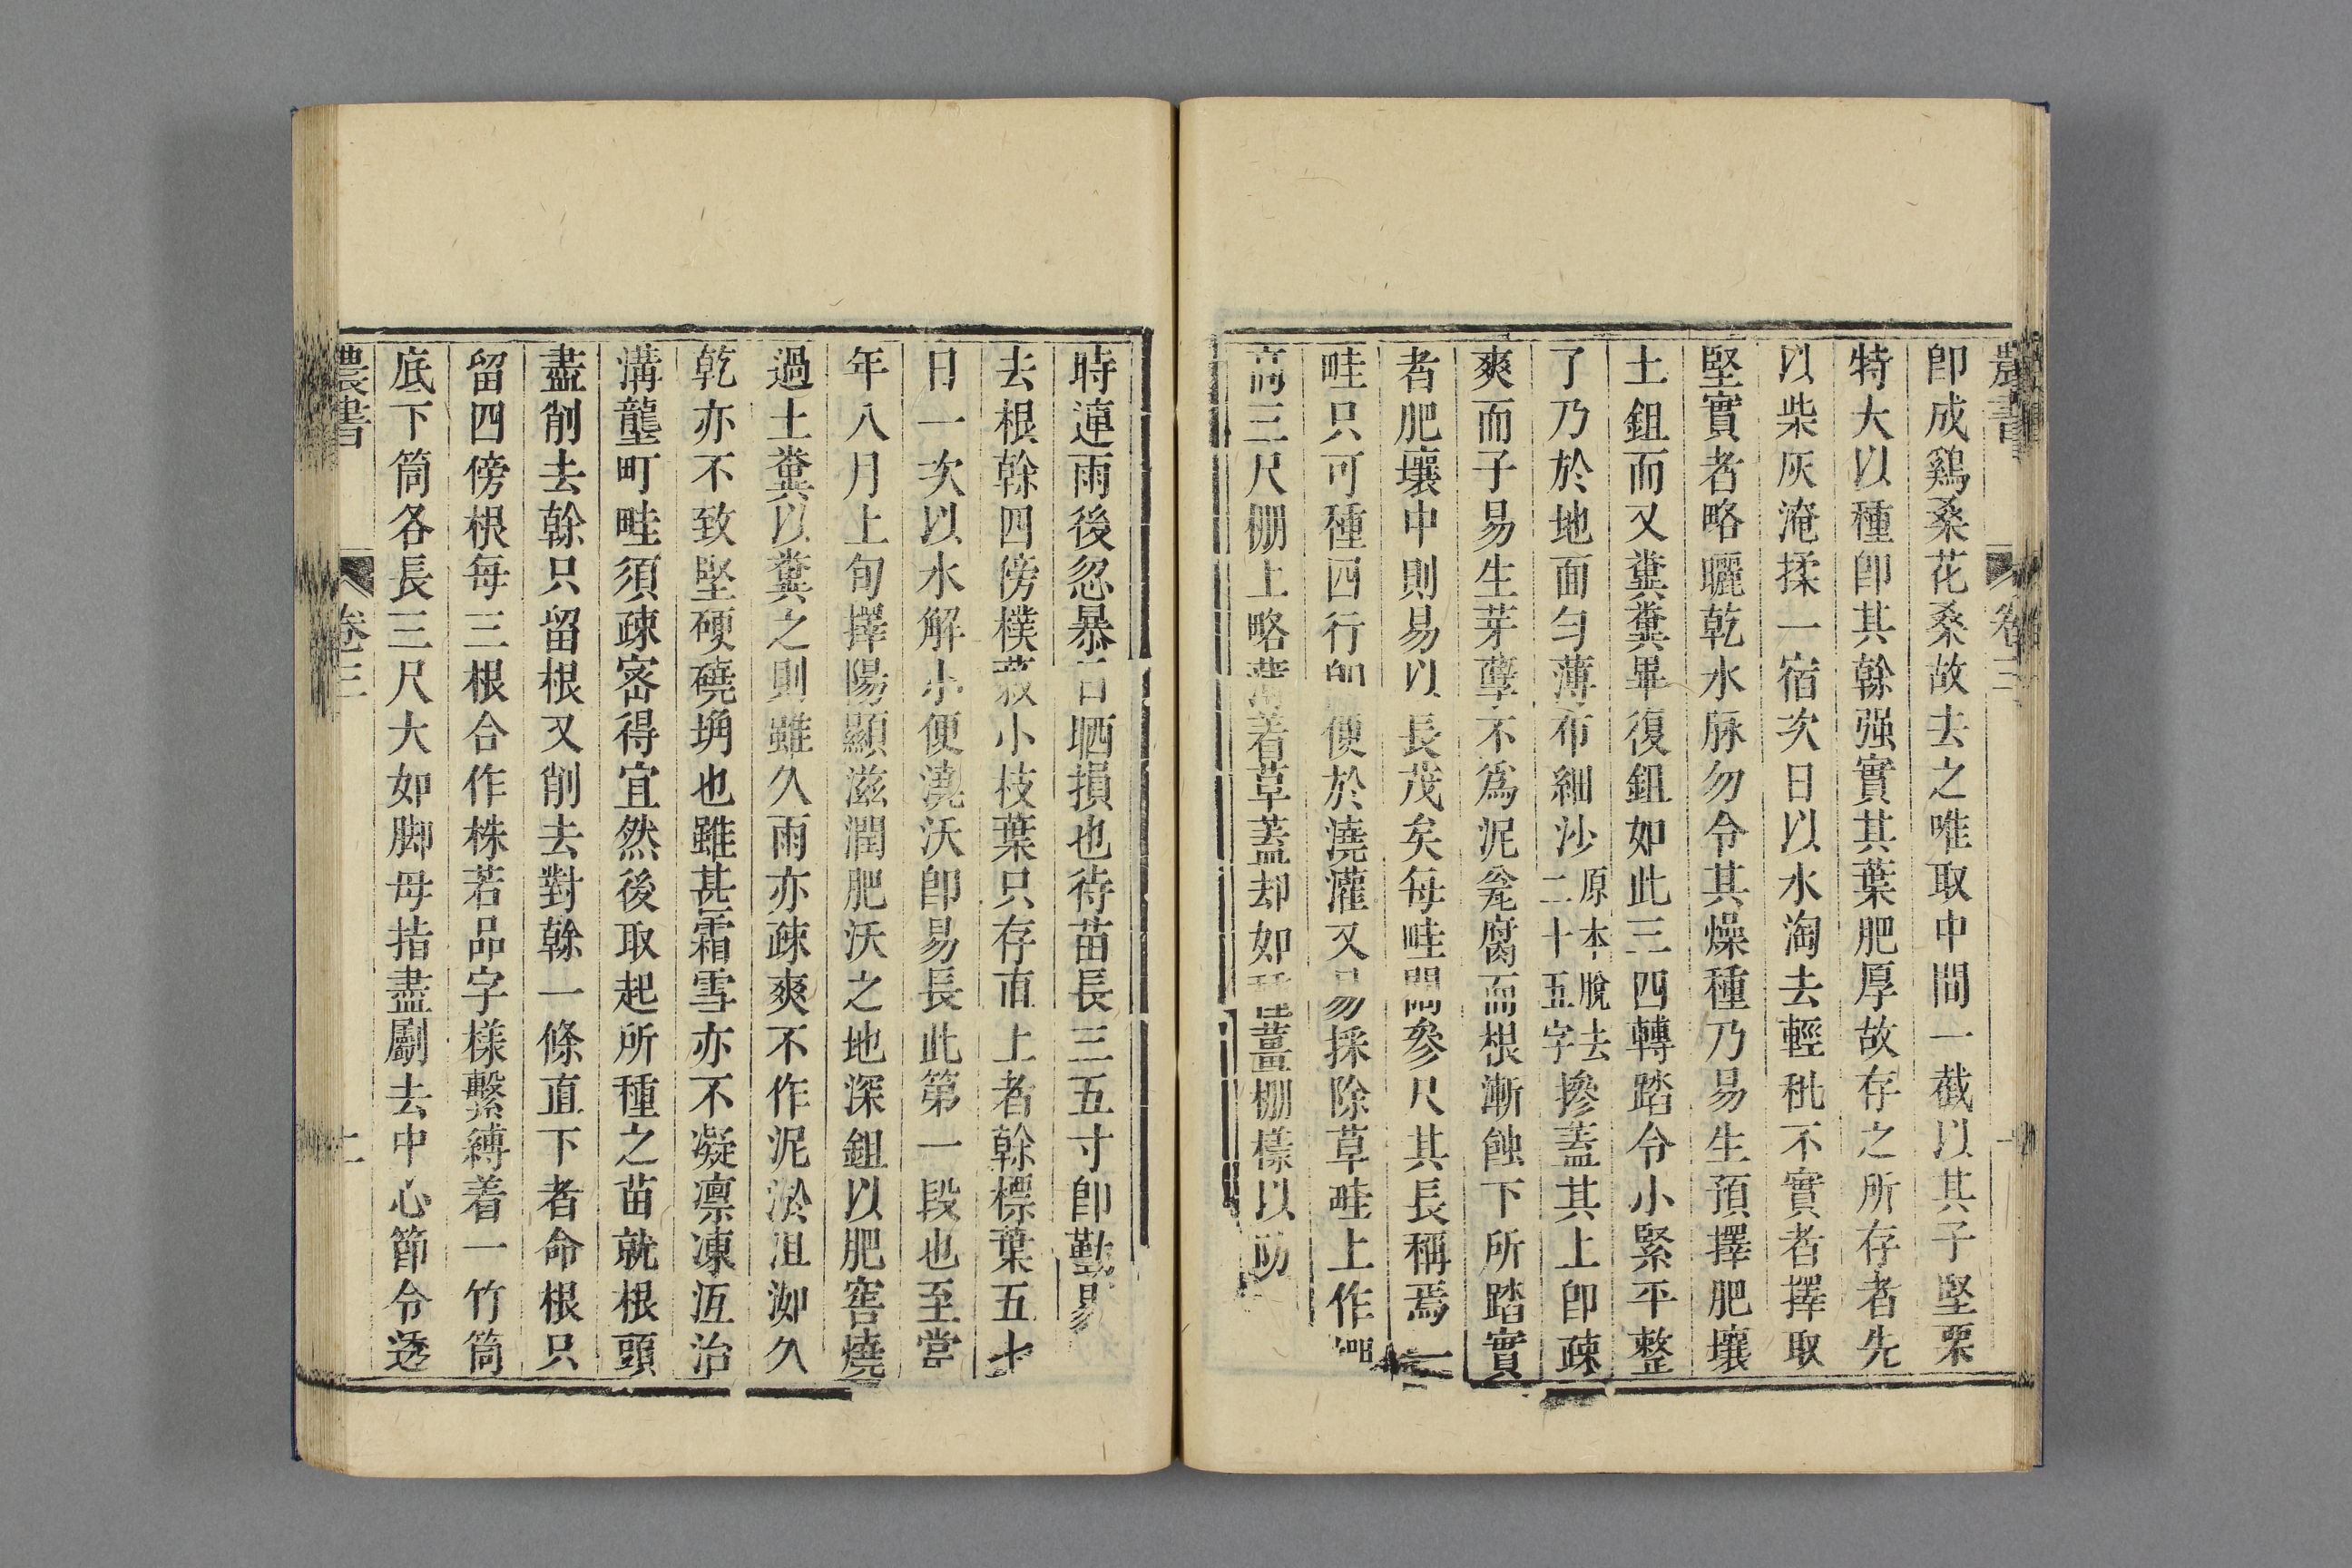 農書
卷三
卽成鷄桑花桑故去之唯取中間一截以其子堅栗
特大以種卽其榦强實其葉肥厚故存之所存者先
以柴灰淹揉一宿次日以水淘去輕秕不實者擇取
堅實者略曬乾水脉勿令其燥種乃易生預擇肥壤
土鉏而又糞糞畢復鉏如此三四轉踏令小緊平整
了乃於地面勻薄布細沙原本脫去二十五字摻蓋其上卽疎
爽而子易生芽孽不爲泥瓮腐而根漸蝕下所踏實
者肥壤中則易以長茂矣每畦闊參尺其長稱焉一
畦只可種四行卽便於澆灌又易採除草畦上作棚
高三尺棚上略薄着草蓋却如種薑棚樣以防
時連雨後忽暴日晒損也待苗長三五寸卽勤
去根榦四傍樸蔌小枝葉只存直上者榦標葉五七
日一次以水解小便澆沃卽易長此第一段也至當
年八月上旬擇陽顯滋潤肥沃之地深鉏以肥窖燒
過土糞以糞之則雖久雨亦疎爽不作泥淤沮洳久
乾亦不致堅硬磽埆也雖甚霜雪亦不凝凛凍沍治
溝壟町畦須疎密得宜然後取起所種之苗就根頭
盡削去榦只留根又削去對榦一條直下者命根只
留四傍根每三根合作株若品字樣繫縛着一竹筒
底下筒各長三尺大如脚母指盡劚去中心節令透
農書
卷三